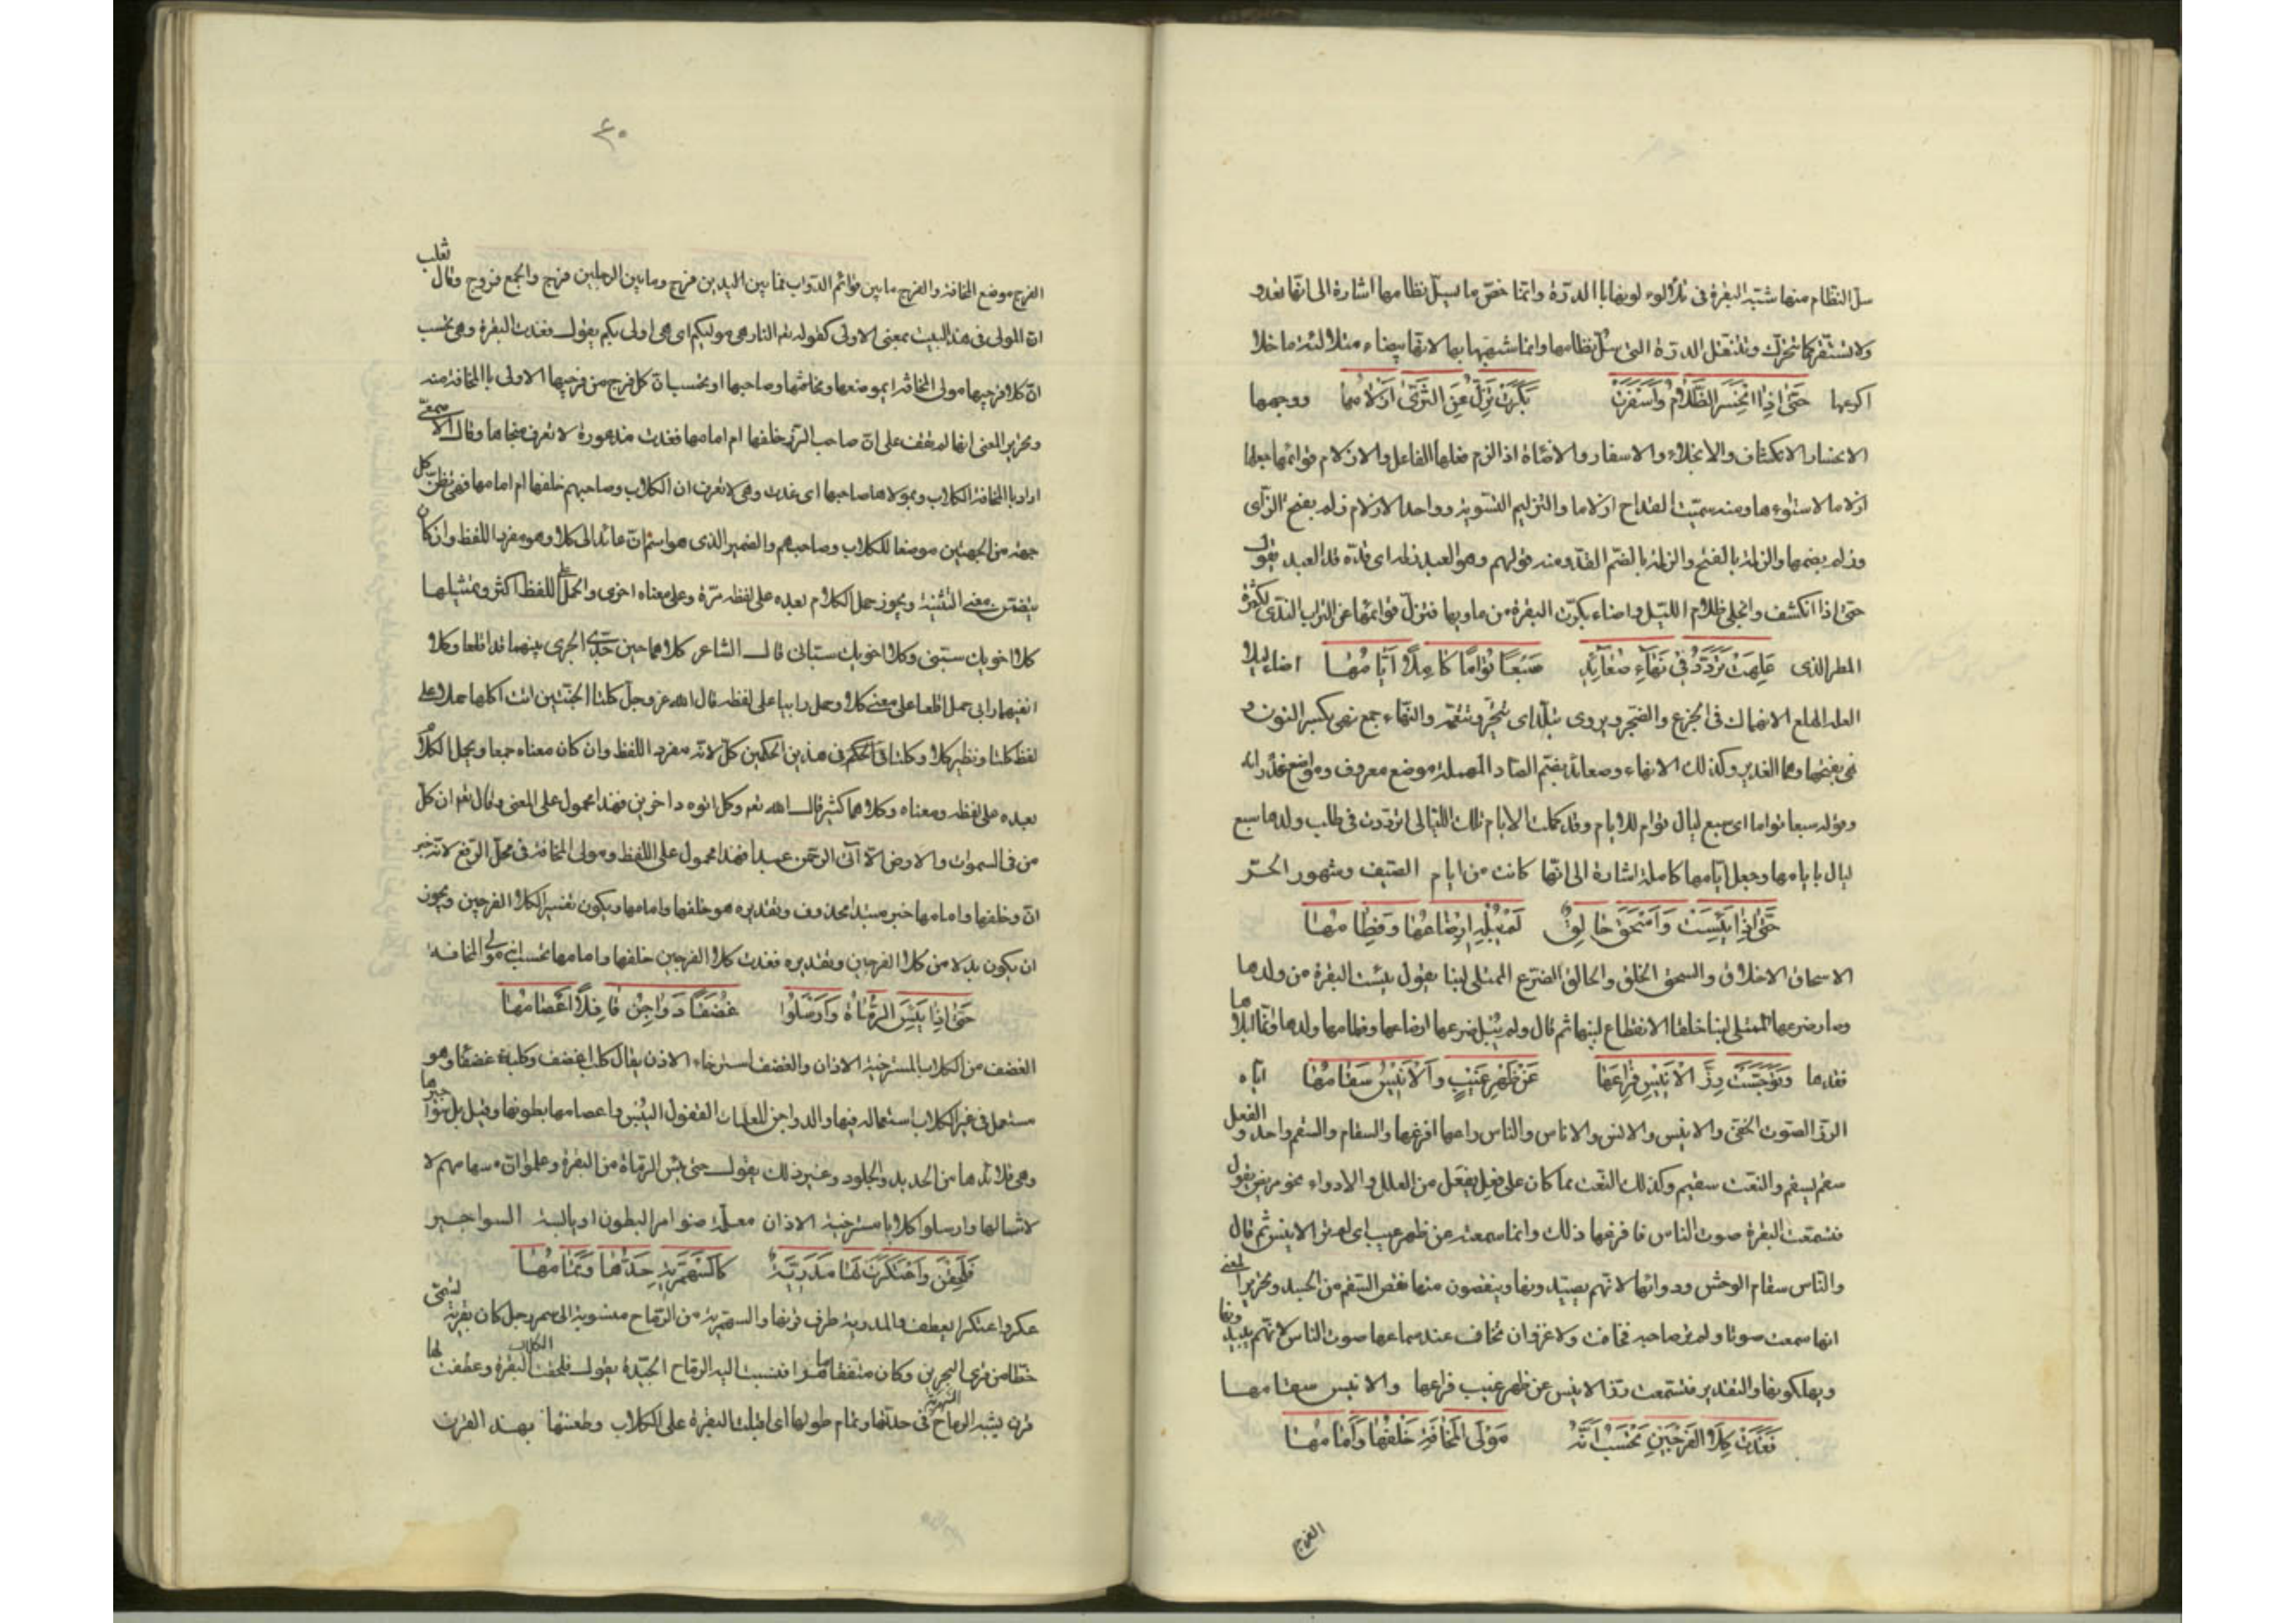 سل النظام منها شبه البقرة في تلألؤ لونها بالدرة وانما خص ما يسل نظامها اشارة الى انها تعدو
ولا تستقر كما تتحرك وتنتقل الدرة التى سل نظامها وانما شبهها بها لانها بيضاء متلألئة ما خلا
اكرعها حَتّى اِذا انْحَسَرَ الظَّلامُ وَاَسْفَرَتْ بَكَرَتْ تَزِلُّ عَنِ الثَّرَى اَزْلامُها ووجهها
الانحسار الانكشاف والانجلاء والاسفار والاضاءة اذا لزم فعلها الفاعل والازلام قوائمها جعلها
ازلاما لاستوءها ومنه سميت القداح ازلاما والتزليم التسوية وواحد الازلام زلم بفتح الزاى
وزلم بضمها والزلمة بالفتح والزلمة بالضم القد ومنه قولهم وهو العبد زلمه اى قدّه قد العبد يقول
حتى اذا انكشف وانجلى ظلام الليل واضاء بكرت البقرة من ماويها فتزل قوائمها عن التراب الندى لكثرة
المطر الذى عَلِهَتْ تَرَدَّدُ فى نَهاءِ صُعائِدٍ سَبْعًا تُؤامًا كامِلًا اَيّامُها اصابه ليلا
العله الهلع الانهماك فى الجزع والضجر ويروى تبلد اى تتحير وتتعمه والنهاء جمع نهى بكسر النون و
نهى بفتحها وهما الغدير وكذلك الانهاء وصعائد بضم الصاد المهملة موضع معروف ومواضع غدرانه
وقوله سبعا تؤاما اى سبع ليال تؤام للايام وقد كملت الايام تلك الليالى اى ترددت فى طلب ولدها سبع
ليال بايامها وجعل ايامها كاملة اشارة الى انها كانت من ايام الصيف وشهور الحر
حَتّى اِذا يَئِسَتْ وَاَسْحَقَ حالِقٌ لَمْ يُبْلِهِ اِرْضاعُها وَفِطامُها
الاسحاق الاخلاق والسحق الخلق والحالق الضرع الممتلى لبنا يقول يئست البقرة من ولدها
وصار ضرعها الممتلى لبنا خلقا لانقطاع لبنها ثم قال ولم يبل ضرعها ارضاعها وفطامها ولدها وانما ابلاها
فقدها وَتَوَجَّسَتْ رِزَّ الاَنيسِ فَراعَها عَنْ ظَهْرِ غَيْبٍ وَالاَنيسُ سَقامُها اياه
الرز الصوت الخفى والانيس والانس والاناس والناس راعها افزعها والسقام والسقم واحد والفعل
سقم يسقم والنعت سقيم وكذلك النعت مما كان على فعل يفعل من العلل والادواء نحو مريض يقول
فتسمعت البقرة صوت الناس فافزعها ذلك وانما سمعته عن ظهر غيب اى لم تر الانيس ثم قال
والناس سقام الوحش وداؤها لانهم يصيدونها وينقصون منها نقص السقم من الجسد وتحرير المعنى
انها سمعت صوتا ولم تر صاحبه فخافت ولا غرو ان تخاف عند سماعها صوت الناس لانهم يبيدونها
ويهلكونها والتقدير فتسمعت رز الانيس عن ظهر غيب فراعها والانيس سقامها
فَغَدَتْ كِلا الفَرْجَيْنِ تَحْسَبُ اَنَّهُ مَوْلَى المَخافَةِ خَلْفُها وَاَمامُها
الفرج
٤٠
الفرج موضع المخافة والفرج ما بين قوائم الدواب فما بين اليدين فرج وما بين الرجلين فرج والجمع فروج وقال ثعلب
ان المولى فى هذا البيت بمعنى الاولى كقوله تعم النار هى موليكم اى هى اولى بكم يقول فغدت البقرة وهى تحسب
ان كلا فرجيها مولى المخافة اى موضعها ومخافتها وصاحبها او تحسب ان كل فرج من فرجيها الاولى بالمخافة منه
وتحرير المعنى انها لم تقف على ان صاحب الرز خلفها ام امامها فغدت مذعورة لا تعرف منجاها وقال الاصمعى
اراد بالمخافة الكلاب وبمولاها صاحبها اى غدت وهى لا تعرف ان الكلاب وصاحبهم خلفها ام امامها فهى تظن كل
جهة من الجهتين موضعا للكلاب وصاحبهم والضمير الذى هو اسم ان عائد الى كلا وهو مفرد اللفظ وان كان
يتضمن معنى التثنية ويجوز حمل الكلام بعده على لفظه مرة وعلى معناه اخرى والحمل على اللفظ اكثر وتمثيلها
كلا اخويك سبنى وكلا اخويك سبانى قال الشاعر كلاهما حين جد الجرى بينهما قد اقلعا وكلا
انفيهما رابى حمل اقلعا على معنى كلا وحمل رابيا على لفظه قال الله عز وجل كلتا الجنتين اتت اكلها حملا على
لفظ كلتا ونظير كلا وكلتا فى الحكم فى هذين الحكمين كل لانه مفرد اللفظ وان كان معناه جمعا ويحمل الكلام
بعده على لفظه ومعناه وكلاهما كثير قال الله تعم وكل اتوه داخرين فهذا محمول على المعنى وقال تعم ان كل
من فى السموات والارض الا آتى الرحمن عبدا فهذا محمول على اللفظ ومولى المخافة فى محل الرفع لانه خبر
ان وخلفها وامامها خبر مبتدا محذوف وتقديره هو خلفها وامامها ويكون تفسير الكلا الفرجين ويجوز
ان يكون بدلا من كلا الفرجين وتقديره فغدت كلا الفرجين خلفها وامامها تحسب انه مولى المخافة
حَتّى اِذا يَئِسَ الرُّماةُ وَاَرْسَلُوا غُضْفًا دَواجِنَ قافِلًا اَعْصامُها
الغضف من الكلاب المسترخية الاذان والغضف استرخاء الاذن يقال كلب اغضف وكلبة غضفاء وهو
مستعمل فى غير الكلاب استعماله فيها والدواجن المعلمات القفول اليبس واعصامها بطونها وقيل بل سواجيرها
وهى قلائدها من الحديد والجلود وغير ذلك يقول حتى يئس الرماة من البقرة وعلموا ان سهامهم لا
تنالها وارسلوا كلابا مسترخية الاذان معلمة ضوامر البطون او يابسة السواجير
فَلَحِقْنَ وَاعْتَكَرَتْ لَها مَدَرِيَّةٌ كَالسَّمْهَرِيَّةِ حَدُّها وَتَمامُها
عكر واعتكر اى عطف والمدرية طرف قرنها والسمهرية من الرماح منسوبة الى سمهر رجل كان بقرية تسمى
خطا من قرى البحرين وكان مثقفا ماهرا فنسبت اليه الرماح الجيدة يقول فلحقت الكلاب البقرة وعطفت لها
قرن يشبه الرماح السمهرية فى حدتها وتمام طولها اى اقبلت البقرة على الكلاب وطعنتها بهذا القرن